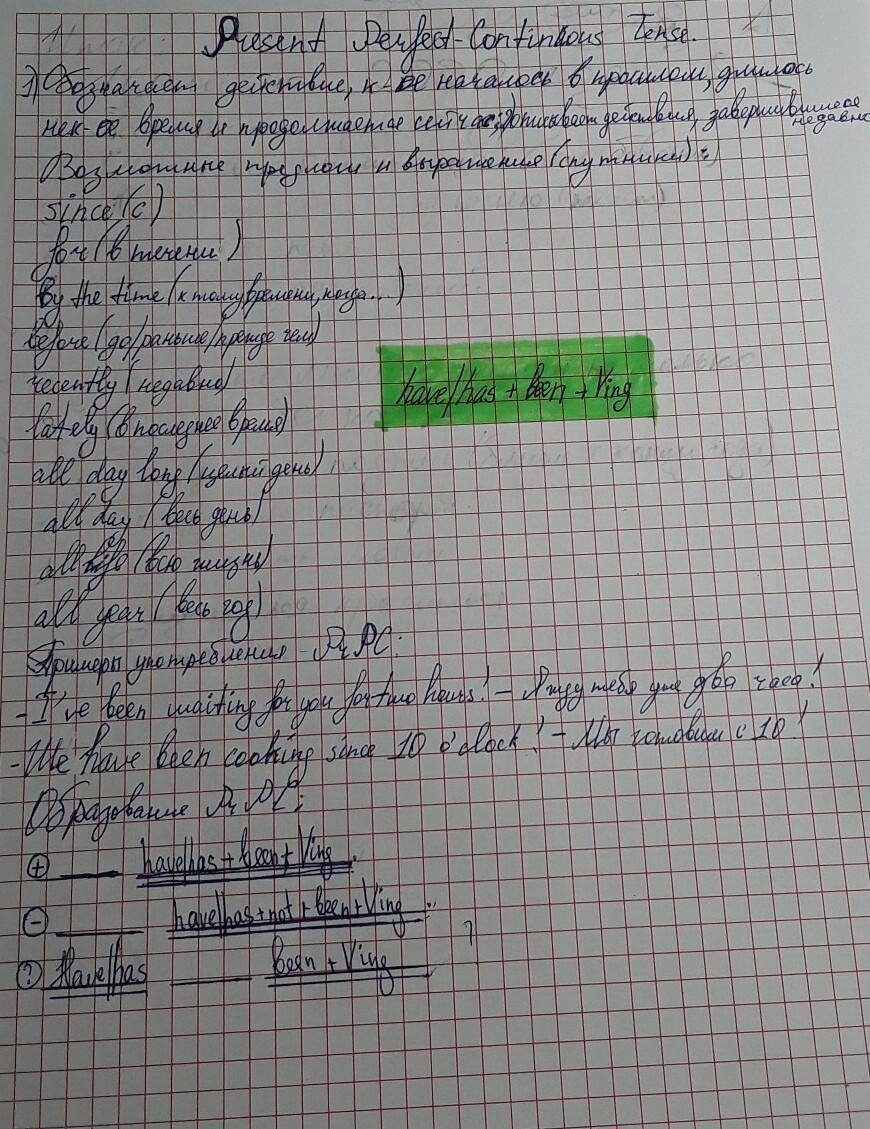 Present Perfect-Continuous Tense.
1) Обозначает действие, к-ое началось в прошлом, длилось
нек-ое время и продолжается сейчас; Описывает действия, завершившиеся недавно
Возможные предлоги и выражения (спутники):
since (с)
for (в течени)
By the time (к тому времени, когда...)
before (до/раньше/прежде чем)
recently (недавно)
lately (в последнее время)
have/has + been + Ving
all day long (целый день)
all day (весь день)
all life (всю жизнь)
all year (весь год)
Примеры употребления PrPC:
- I've been waiting for you for two hours! - Я жду тебя уже два часа!
- We have been cooking since 10 o'clock! - Мы готовим с 10!
Образование PrPC:
+ ____ have/has + been + Ving.
- ____ have/has + not + been + Ving.
? Have/has ____ been + Ving ?